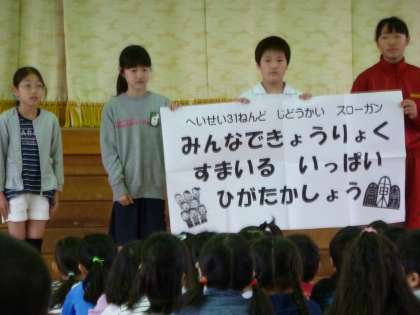 へいせい31ねんど じどうかい スローガン
みんなできょうりょく
すまいる いっぱい
ひがたかしょう
東